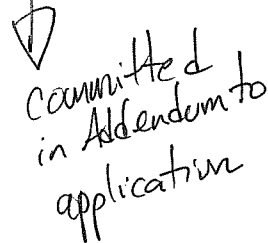 committed
in Addendum to
application